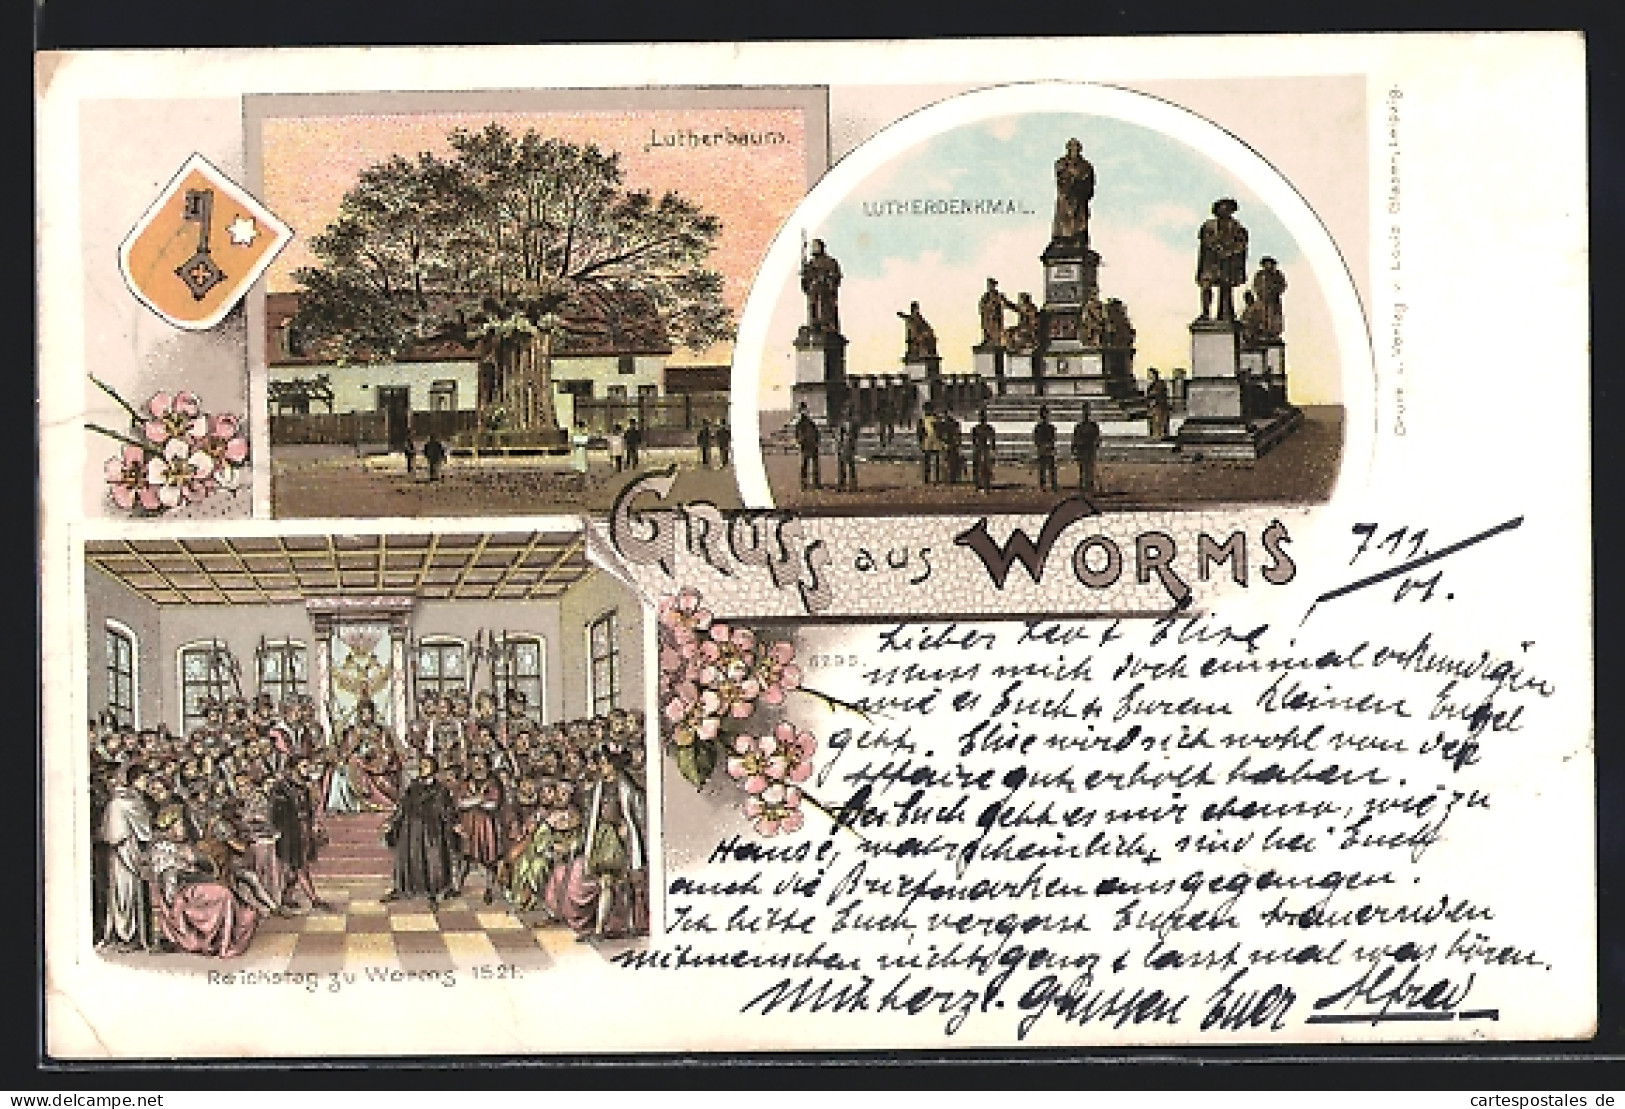 Lutherbaum.
LUTHERDENKMAL.
Druck u. Verlag v. Louis Glaser, Leipzig.
GRUSS aus WORMS
7 11.
01.
6295.
Lieber & Elise!
muss mich doch einmal erkundigen
wie es Euch & Eurem kleinen Engel
geht. Elise wird sich wohl von der
Affaire gut erholt haben.
Bei Euch geht es mir ebenso, wie zu
Hause, wahrscheinlich sind bei Euch
auch die Briefmarken ausgegangen.
Ich bitte Euch, vergesst Euren trauernden
Mitmenschen nicht ganz & lasst mal was hören.
Mit herzl. Grüssen Euer Alfred
Reichstag zu Worms 1521.
delcampe.net
cartespostales de